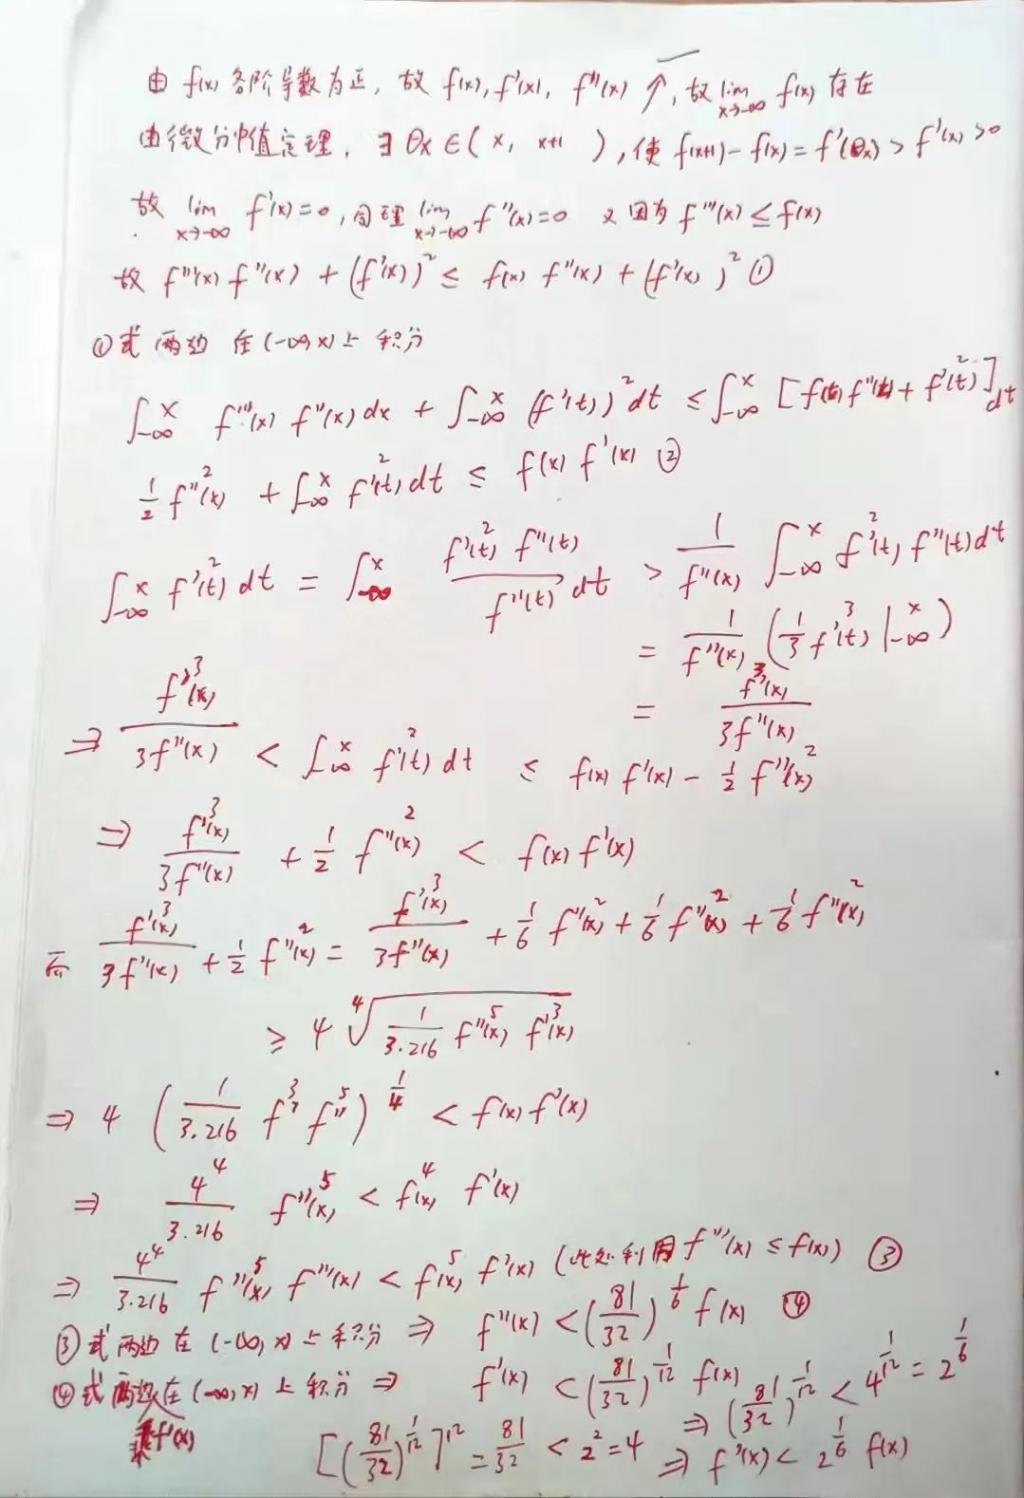 由 f(x) 各阶导数为正, 故 f(x), f'(x), f''(x) ↑, 故 lim_{x→-∞} f(x) 存在
由微分中值定理, ∃ θx ∈ (x, x+1), 使 f(x+1) - f(x) = f'(θx) > f'(x) > 0
故 lim_{x→-∞} f'(x) = 0, 同理 lim_{x→-∞} f''(x) = 0 又因为 f'''(x) ≤ f(x)
故 f'''(x) f''(x) + (f'(x))² ≤ f(x) f''(x) + (f'(x))² ①
①式两边在 (-∞, x) 上积分
∫_{-∞}^{x} f'''(x) f''(x) dx + ∫_{-∞}^{x} (f'(t))² dt ≤ ∫_{-∞}^{x} [f(t) f''(t) + f'²(t)] dt
1/2 f''²(x) + ∫_{-∞}^{x} f'²(t) dt ≤ f(x) f'(x) ②
∫_{-∞}^{x} f'²(t) dt = ∫_{-∞}^{x} f'²(t) f''(t) / f''(t) dt > 1/f''(x) ∫_{-∞}^{x} f'²(t) f''(t) dt
= 1/f''(x) (1/3 f'³(t) |_{-∞}^{x})
= f'³(x) / 3f''(x)
⇒ f'³(x) / 3f''(x) < ∫_{-∞}^{x} f'²(t) dt ≤ f(x) f'(x) - 1/2 f''²(x)
⇒ f'³(x) / 3f''(x) + 1/2 f''²(x) < f(x) f'(x)
而 f'³(x) / 3f''(x) + 1/2 f''²(x) = f'³(x) / 3f''(x) + 1/6 f''²(x) + 1/6 f''²(x) + 1/6 f''²(x)
≥ 4 ∜(1/3·216 f''⁵(x) f'³(x))
⇒ 4 (1/3·216 f'³ f''⁵)^{1/4} < f(x) f'(x)
⇒ 4⁴/3·216 f''⁵(x) < f⁴(x) f'(x)
⇒ 4⁴/3·216 f''⁵(x) f'''(x) < f⁵(x) f'(x) (此处利用 f'''(x) ≤ f(x)) ③
③式两边在 (-∞, x) 上积分 ⇒ f''(x) < (81/32)^{1/6} f(x) ④
④式两边在 (-∞, x) 上积分 ⇒ f'(x) < (81/32)^{1/12} f(x) ⇒ (81/32)^{1/12} < 4^{1/12} = 2^{1/6}
乘f'(x)
[(81/32)^{1/12}]^{12} = 81/32 < 2² = 4 ⇒ f'(x) < 2^{1/6} f(x)